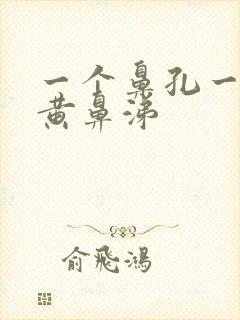 一个鼻孔一
黄鼻涕
俞飛鴻